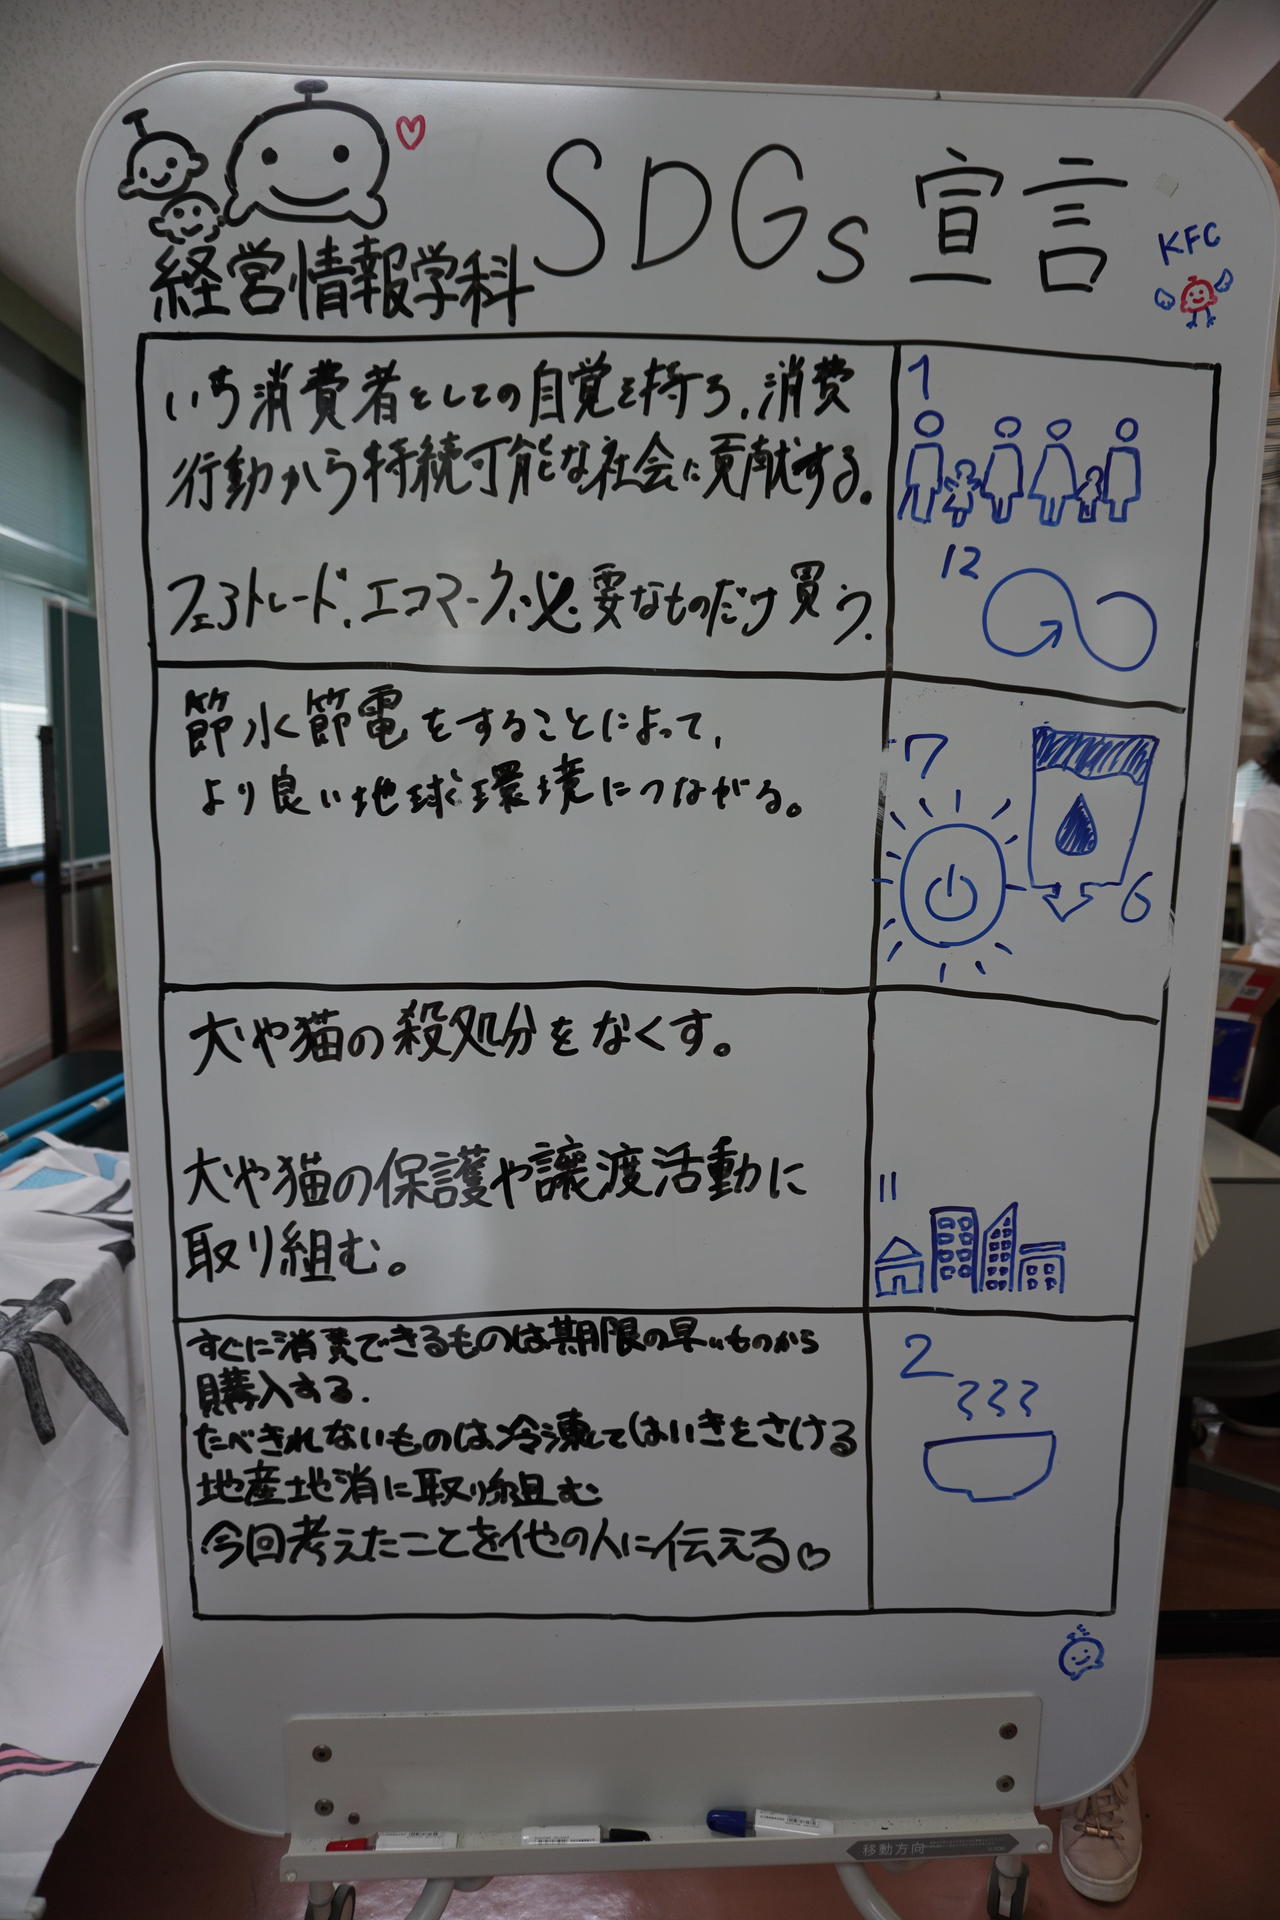 SDGs宣言
経営情報学科
KFC
いち消費者としての自覚を持ち、消費
行動から持続可能な社会に貢献する。
フェアトレード、エコマーク、必要なものだけ買う、
1
12
節水節電をすることによって、
より良い地球環境につながる。
7
6
犬や猫の殺処分をなくす。
犬や猫の保護や譲渡活動に
取り組む。
11
すぐに消費できるものは期限の早いものから
購入する.
たべきれないものは冷凍してはいきをさける
地産地消に取り組む
今回考えたことを他の人に伝える♡
2
移動方向